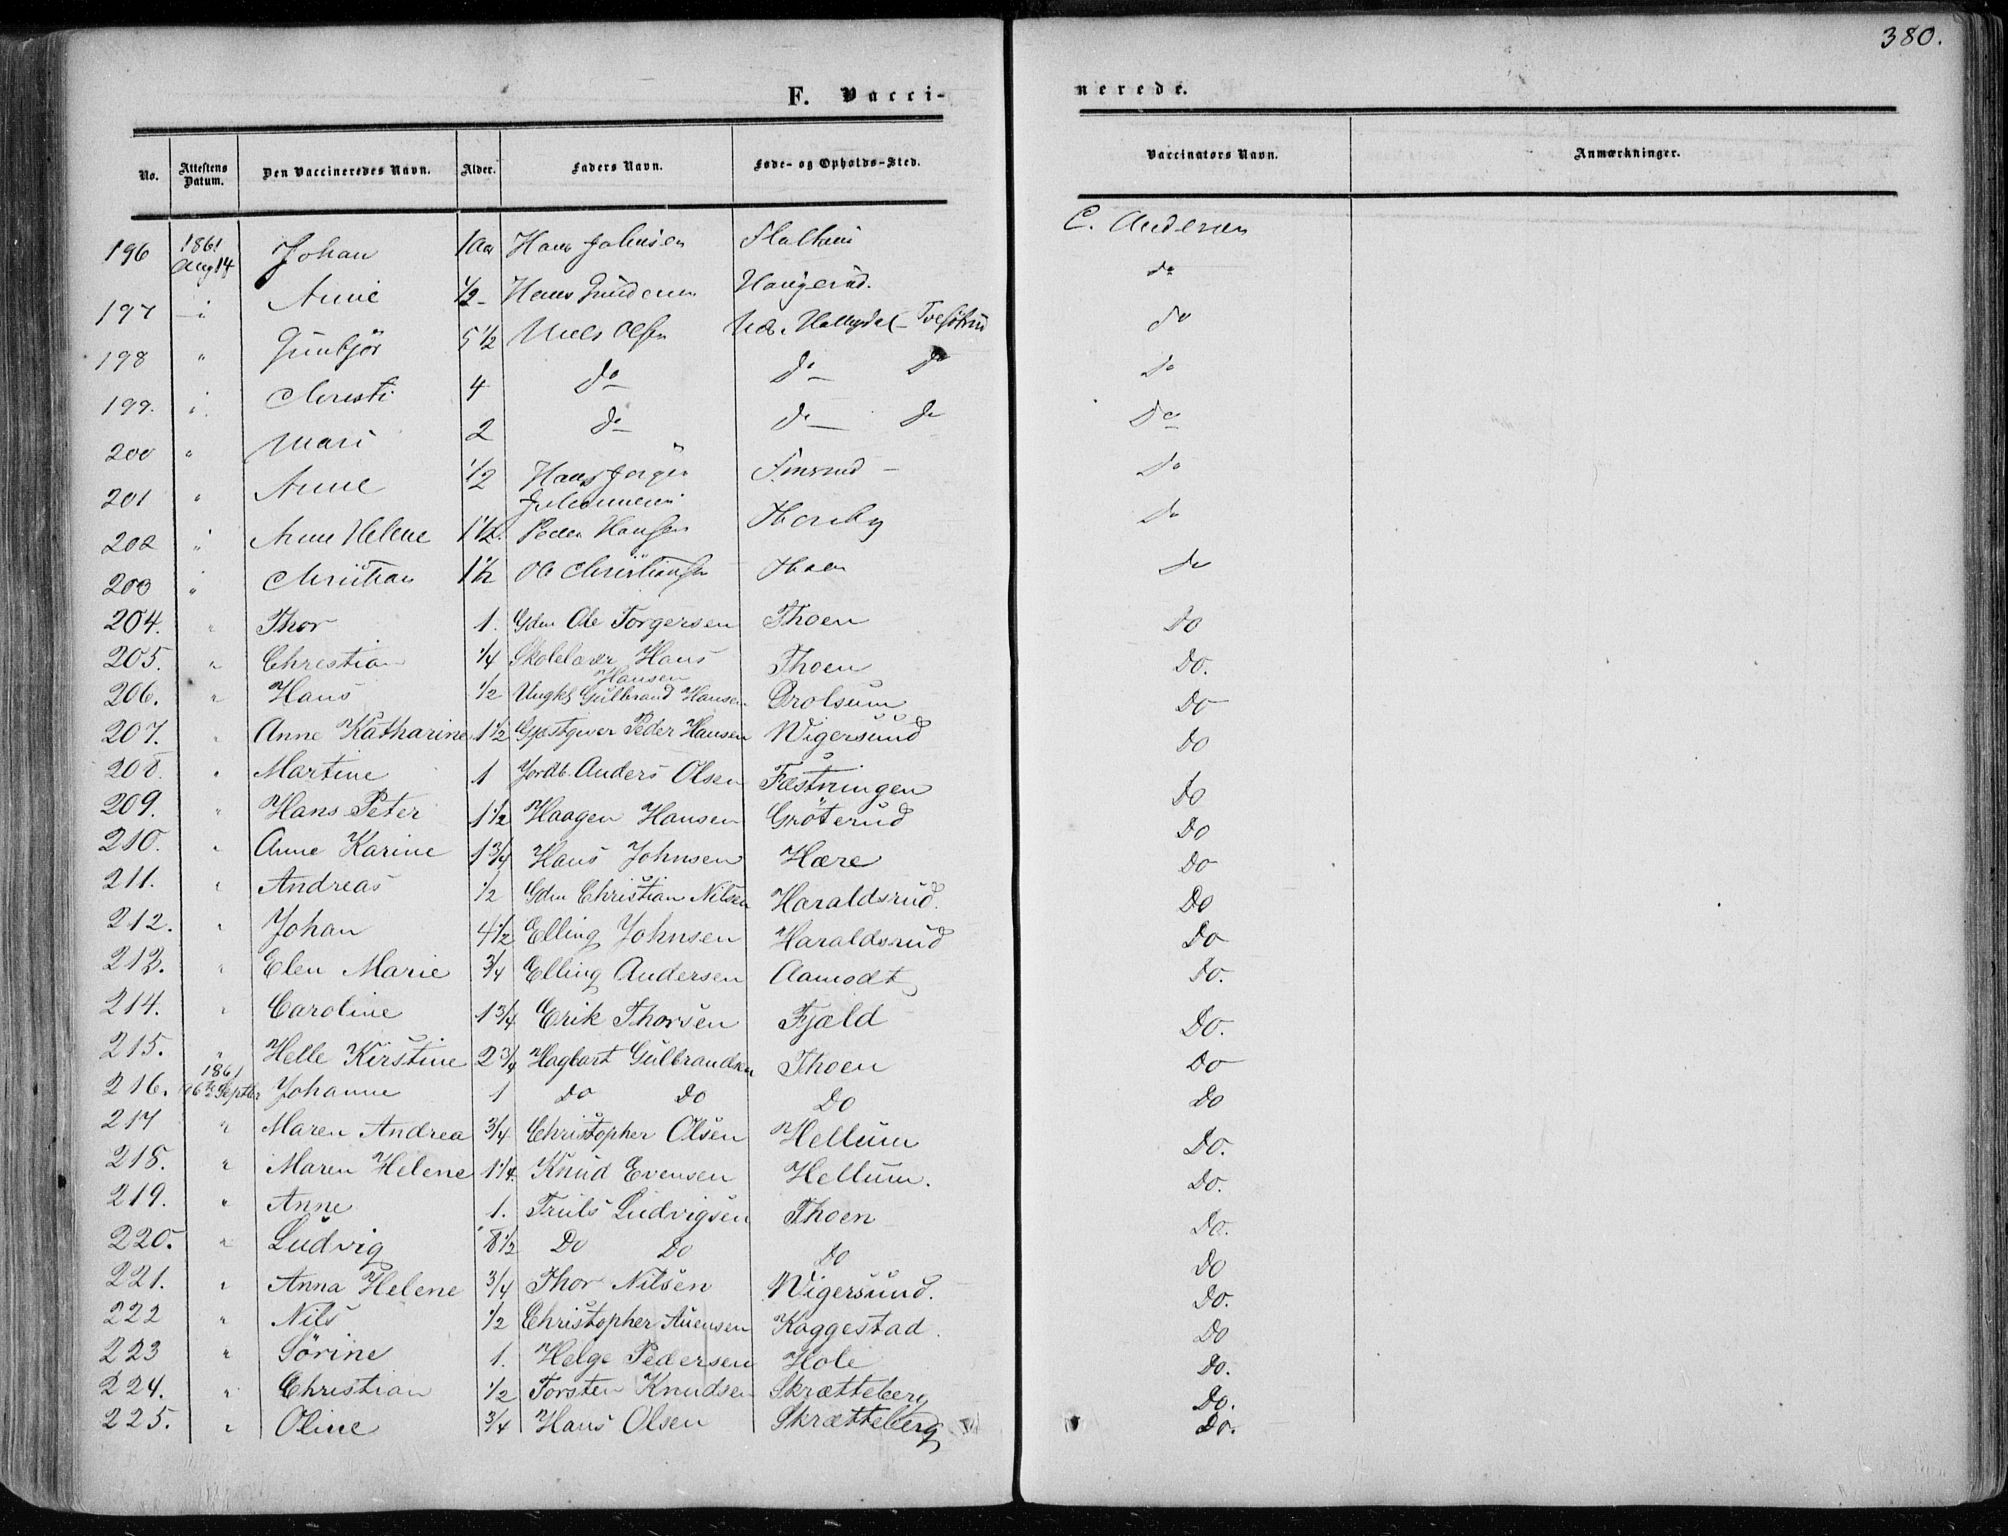 380.
F. Vacci-
nerede.
No. Attestens Datum. Den Vaccineredes Navn. Alder. Faders Navn. Føde- og Opholds-Sted. Vaccinators Navn. Anmærkninger.
196 1861 Aug 14 Johan 1 Aar Hans Johnsen C. Andersen
197 Anne 1/2 Hans Gundersen Haugerud. do
198 " Gunbjør 5 1/2 Niels Olsen Hallingdal do
199. Christi 4 do do do do
200 " Mari 2 do do do do
201 " Anne 1/2 Hans Jørgen Johannesen Finsrud do
202 " Anne Helene 1 1/2. Peder Hansen Thorsby do
203 " Christian 1 1/2 Ole Christiansen Thoen do
204. " Thor 1. Gdm Ole Torgersen Thoen Do
205. " Christian 1/4 Skolelærer Hans Hansen Thoen Do.
206. " Hans 1/2 Ungkl Gulbrand Hansen Drolsum Do
207. " Anne Katharine 1 1/2 Gjæstgiver Peder Hansen Wigersund Do
208. " Martine 1 Jordb. Anders Olsen Fæstningen Do
209. " Hans Peter 1 1/2 Haagen Hansen Gröterud Do
210. " Anne Karine 1 3/4 Hans Johnsen Hære Do
211. " Andreas 1/2 Gdm Christian Nilsen Haraldsrud. Do
212. " Johan 4 1/2 Elling Johnsen Haraldsrud Do
213. " Elen Marie 3/4 Elling Andersen Aamodt Do.
214. " Caroline 1 3/4 Erik Thorsen Fjeld Do.
215. " Helle Kirstine 2 3/4 Hagbart Gulbrandsen Thoen Do
216. 1861 Septbr Johanne 1 Do Do Do Do
217 " Maren Andrea 3/4 Christopher Olsen Hellum Do.
218. " Maren Helene 1 1/4. Knud Evensen Hellum. Do.
219. " Anne 1. Truls Ludvigsen Thoen Do.
220. " Ludvig 8 1/2 Do Do Do Do
221. " Anna Helene 3/4 Thor Nilsen Wigersund. Do.
222 " Nils 1/2 Christopher Auensen Kaggestad. Do
223 " Sörine 1. Helge Pedersen Hole Do.
224. " Christian 1/2 Torsten Knudsen Skrætteberg Do.
225. " Oline 3/4 Hans Olsen Skrætteberg Do.